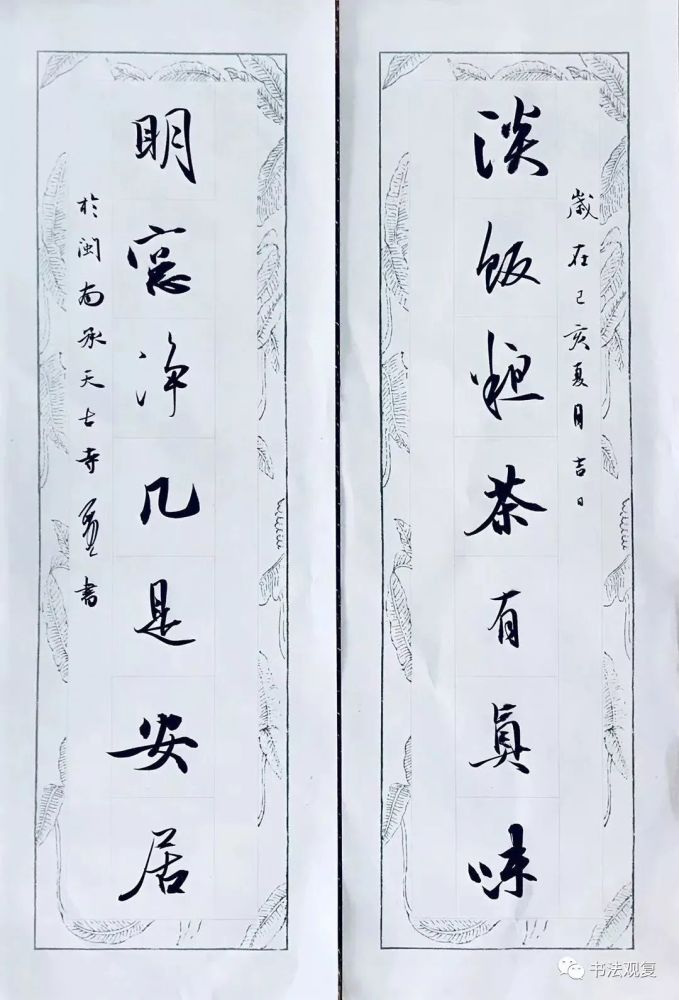 歲在己亥夏月吉日
淡飯粗茶有真味
明窗净几是安居
於闽南承天古寺
書
书法观复